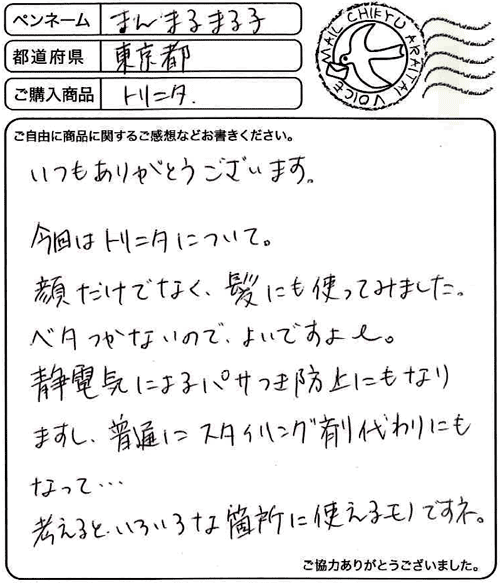 ペンネーム まんまるまる子
都道府県 東京都
ご購入商品 トリニタ.
MAIL CHIKYU ARAITAI VOICE
ご自由に商品に関するご感想などお書きください。
いつもありがとうございます。
今回はトリニタについて。
顔だけでなく、髪にも使ってみました。
ベタつかないので、よいですよ〜。
静電気によるパサつき防止にもなり
ますし、普通にスタイリング剤代わりにも
なって…
考えると、いろいろな箇所に使えるモノですネ。
ご協力ありがとうございました。